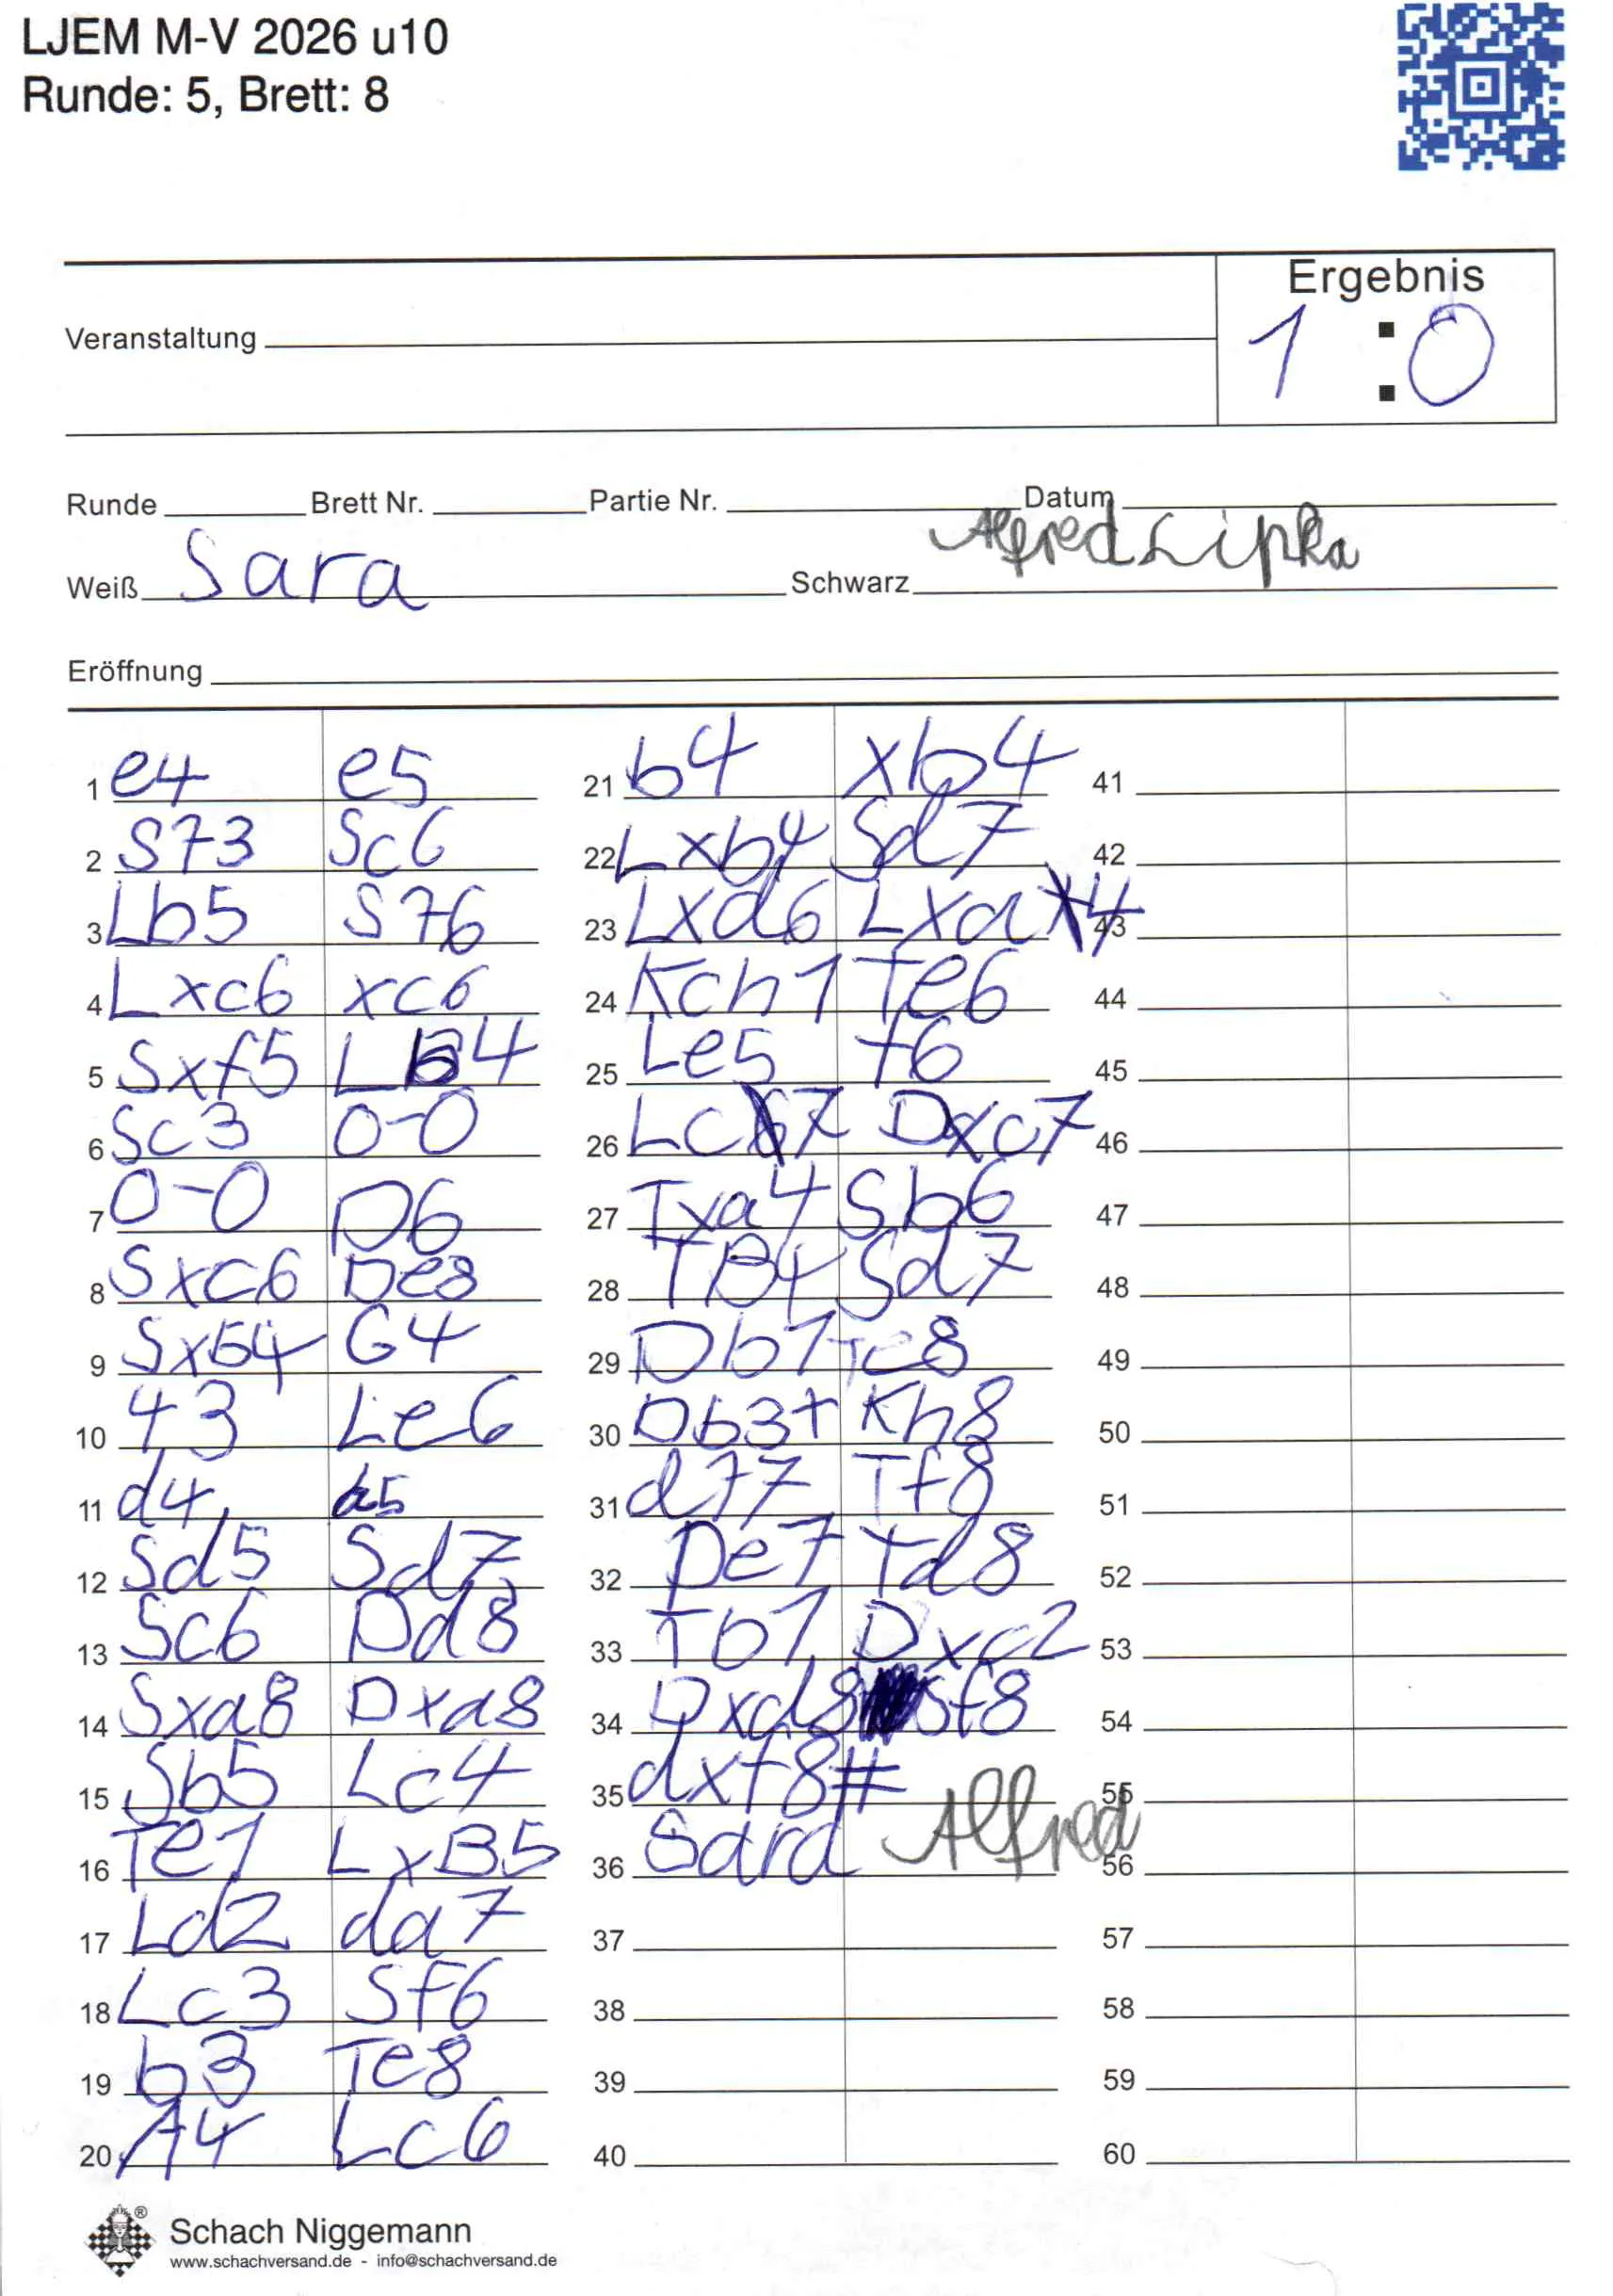 LJEM M-V 2026 u10
Runde: 5, Brett: 8
Ergebnis
Veranstaltung 1 : 0
Runde Brett Nr. Partie Nr. Datum
Weiß Sara Schwarz Alfred Lipka
Eröffnung
1 e4 e5 21 b4 xb4 41
2 S73 Sc6 22 Lxb4 Sd7 42
3 Lb5 S76 23 Lxd6 Lxa4 43
4 Lxc6 xc6 24 Kch1 Te6 44
5 Sxf5 LB4 25 Le5 f6 45
6 Sc3 0-0 26 Lc7 Dxc7 46
7 0-0 D6 27 Txa4 Sb6 47
8 Sxc6 De8 28 TB4 Sd7 48
9 Sxb4 G4 29 Db1 Te8 49
10 43 Le6 30 Db3+ Kh8 50
11 d4 a5 31 d77 Tf8 51
12 Sd5 Sd7 32 De7 Td8 52
13 Sc6 Dd8 33 Tb1 Dxc2 53
14 Sxa8 Dxa8 34 Dxd8 Sf8 54
15 Sb5 Lc4 35 dxf8# 55
16 Te1 LxB5 36 Sara Alfred 56
17 Ld2 da7 37 57
18 Lc3 Sf6 38 58
19 b3 Te8 39 59
20 A4 Lc6 40 60
®
Schach Niggemann
www.schachversand.de - info@schachversand.de